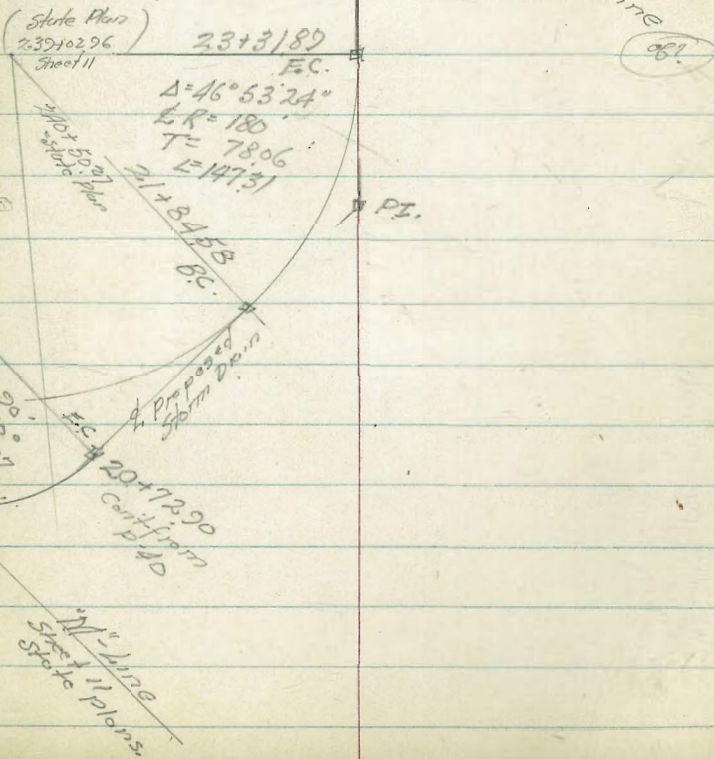 (State Plan)
239+02.96
Sheet 11
23+31.89
E.C.
Δ=46°53'24"
℄ R=180'
T= 78.06
L=147.31
240+50.27
State Plan
21+84.58
B.C.
P.I.
℄ Proposed
Storm Drain
E.C.
20+72.90
Cont. from
p. 40
90'
"M"-Line
Sheet 11
State plans.